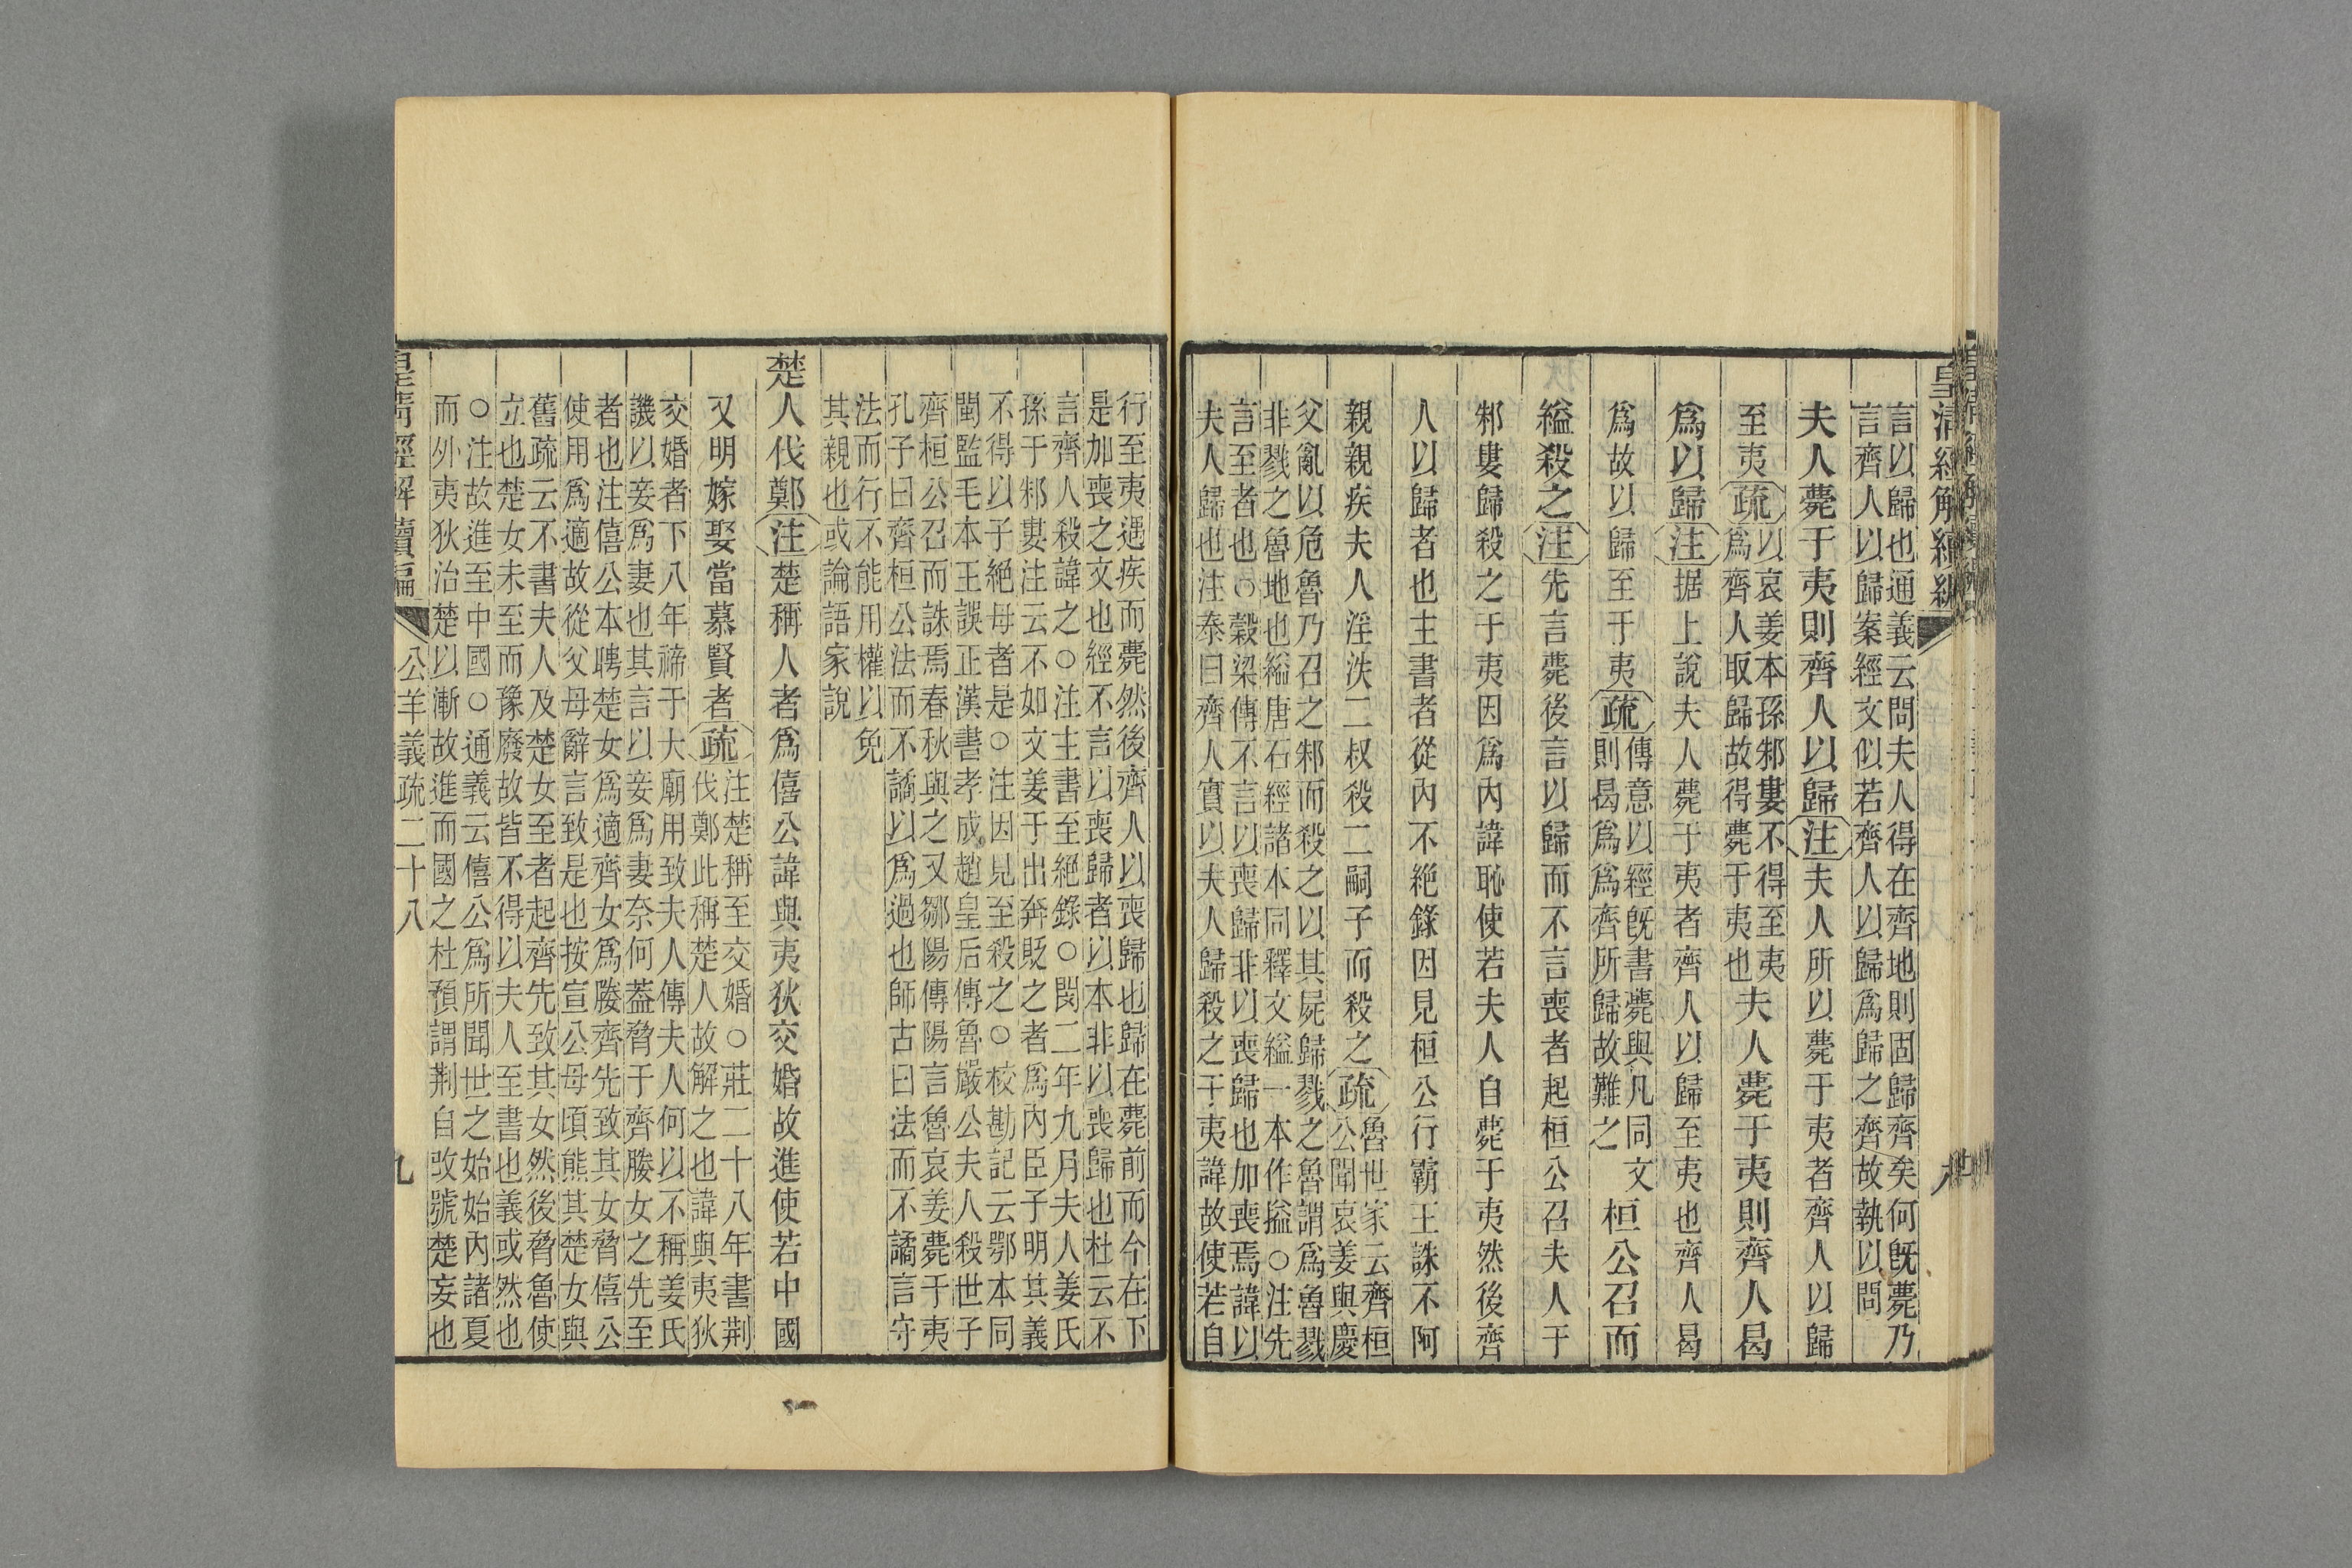 皇清經解續編
言以歸也通義云問夫人得在齊地則固歸齊矣何旣薨乃
言齊人以歸案經文似若齊人以歸爲歸之齊故執以問
夫人薨于夷則齊人以歸注夫人所以薨于夷者齊人以歸
至夷疏以哀姜本孫邾婁不得至夷
爲齊人取歸故得薨于夷也夫人薨于夷則齊人曷
爲以歸注据上說夫人薨于夷者齊人以歸至夷也齊人曷
爲故以歸至于夷疏傳意以經旣書薨與凡同文
則曷爲爲齊所歸故難之桓公召而
縊殺之注先言薨後言以歸而不言喪者起桓公召夫人于
邾婁歸殺之于夷因爲內諱恥使若夫人自薨于夷然後齊
人以歸者也主書者從內不絕錄因見桓公行霸王誅不阿
親親疾夫人淫泆二叔殺二嗣子而殺之疏魯世家云齊桓
公聞哀姜與慶
父亂以危魯乃召之邾而殺之以其屍歸戮之魯謂爲魯戮
非戮之魯地也縊唐石經諸本同釋文縊一本作搤○注先
言至者也○穀梁傳不言以喪歸非以喪歸也加喪焉諱以
夫人歸也注泰曰齊人實以夫人歸殺之于夷諱故使若自
行至夷遇疾而薨然後齊人以喪歸也歸在薨前而今在下
是加喪之文也經不言以喪歸者以本非以喪歸也杜云不
言齊人殺諱之○注主書至絕錄○閔二年九月夫人姜氏
孫于邾婁注云不如文姜于出奔貶之者爲內臣子明其義
不得以子絕母者是○注因見至殺之○校勘記云鄂本同
閩監毛本王誤正漢書孝成趙皇后傳魯嚴公夫人殺世子
齊桓公召而誅焉春秋與之又鄒陽傳陽言魯哀姜薨于夷
孔子曰齊桓公法而不譎以爲過也師古曰法而不譎言守
法而行不能用權以免
其親也或論語家說
楚人伐鄭注楚稱人者爲僖公諱與夷狄交婚故進使若中國
又明嫁娶當慕賢者疏注楚稱至交婚○莊二十八年書荆
伐鄭此稱楚人故解之也諱與夷狄
交婚者下八年禘于大廟用致夫人傳夫人何以不稱姜氏
譏以妾爲妻也其言以妾爲妻奈何葢脅于齊媵女之先至
者也注僖公本聘楚女爲適齊女爲媵齊先致其女脅僖公
使用爲適故從父母辭言致是也按宣公母頃熊其楚女與
舊疏云不書夫人及楚女至者起齊先致其女然後脅魯使
立也楚女未至而豫廢故皆不得以夫人至書也義或然也
○注故進至中國○通義云僖公爲所聞世之始始內諸夏
而外夷狄治楚以漸故進而國之杜預謂荆自攺號楚妄也
皇清經解續編
公羊義疏二十八
九